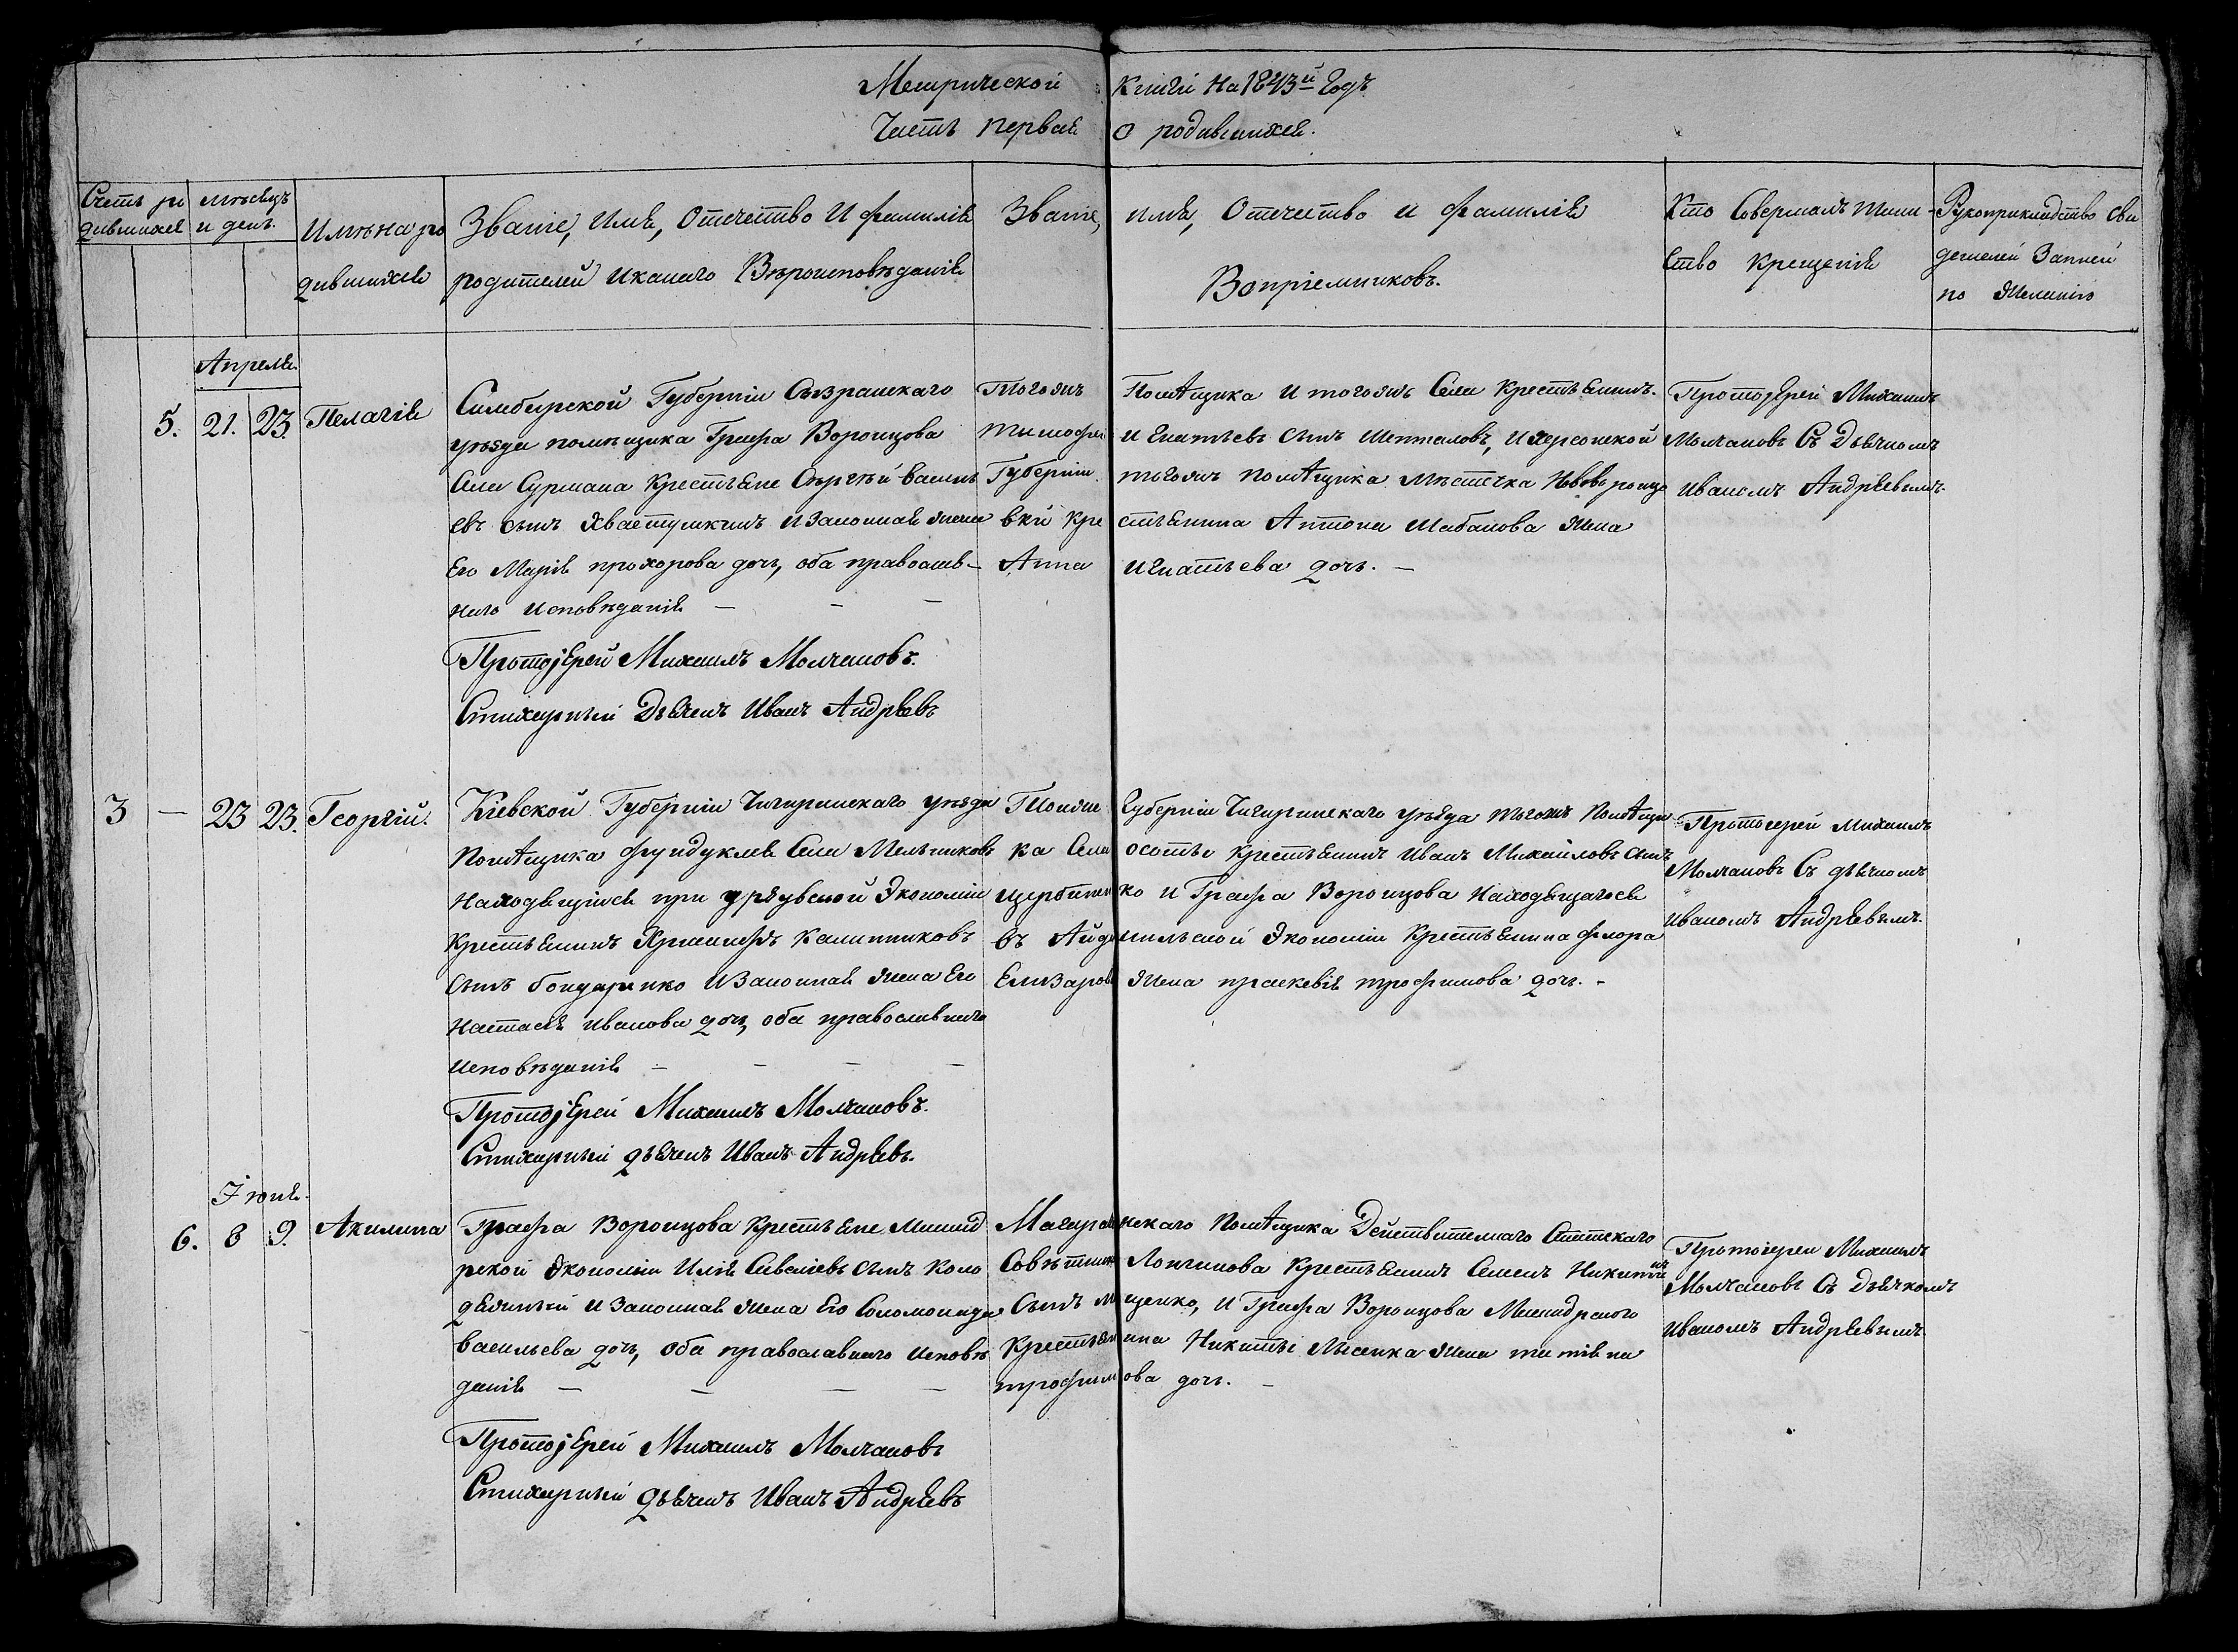 Метрической Книги На 1843й Годъ
Часть первая О родившихся.
Счетъ ро
дившихся
мѣсяцъ
и день.
Имѣна ро
дившихся
Званіе, Имя, Отечество И фамилія
родителей Икакаго Вѣроисповѣданія
Званіе, имя, Отечество и Фамилія
Вопріемниковъ.
Кто Совершалъ Таин
ство Крещенія
Рукоприкладство сви
детелей Записи
по Желанію
Апреля
5. 21. 23. Пелагія
Симбирской Губерніи Сызранскаго
уѣзда помѣщика Графа Воронцова
Села Сурмана Крестьяне Сѣргѣй василь
евъ сынъ Хвастушкинъ Изаконная жена
Его Марія прохорова дочъ, оба православ-
наго исповѣданія — — —
Протоjерей Михаилъ Молчановъ.
Стихарный Дьячекъ Иванъ Андрѣевъ
Тогожъ Помѣщика И тогожъ Села Крестьянинъ
тимофей игнатьевъ сынъ шепталовъ, Ихерсонской
Губерніи тогожъ Помѣщика мѣстечка Нововронцо
вки кре стьянина Антона Шабанова жена
Анна игнатьева дочъ. —
Протоjерей Михаилъ
Молчановъ Съ Дьячкомъ
Иваномъ Андрѣевымъ.
3 — 23 23. Георгій.
Кіевской Губерніи Чигиринскаго уѣзда
Помѣщика Фундуклея Села Мельниковъ
Находящійся при урзувской Экономіи
Крестьянинъ Хрисанфъ Калинниковъ
Сынъ бондаренко Изаконная жена Его
Настасья иванова дочъ, оба православнаго
исповѣданія — — — —
Протоjерей Михаилъ Молчановъ.
Стихарный дьячекъ Иванъ Андрѣевъ.
Тоияже Губерніи Чигиринскаго уѣзда тогожъ Помѣщи
ка Села осоты крестьянинъ Иванъ Михайловъ сынъ
щербтен ко и Графа Воронцова Находящагося
въ Айда нильской Экономіи Крестьянина флора
Елизарова жена праскевія трофимова дочъ. -
Протоіерей Михаилъ
Молчановъ Съ дьячкомъ
Иваномъ Андрѣевымъ.
Іюня.
6. 8 9. Акилина
Графа Воронцова Крестьяне Мисхид
рской Экономіи Илія Савеліевъ сынъ Коло
дяжный и законная жена Его Соломонида
васильева дочъ, оба православнаго исповѣ
данія — — — —
Протоjерей Михаилъ Молчановъ
Стихарный дьячекъ Иванъ Андрѣевъ
Магарачскаго Помѣщика Дѣйствителнаго Статскаго
Совѣтника Логинова Крестьянинъ Семенъ Никитинъ
Сынъ ищенко, и Графа Воронцова
Крестьянина Никиты Лысенка жена татіана
трофимова дочъ. —
Протоіереи Михаилъ
Молчановъ Съ Дьячкомъ
Иваномъ Андрѣевымъ